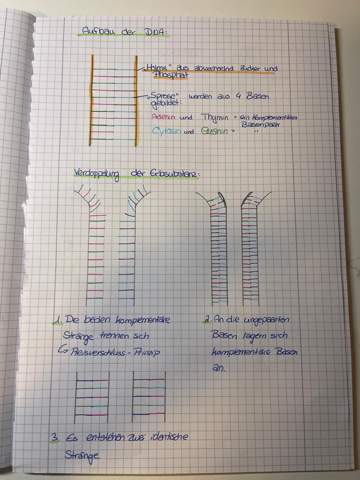 Aufbau der DNA
„Holme" aus abwechselnd Zucker und
Phosphat
„Sprosse" werden aus 4 Basen
gebildet
Adenin und Thymin - ein komplementäres
Basenpaar
Cytosin und Guanin " "
Verdopplung der Erbsubstanz:
1. Die beiden komplementäre
Stränge trennen sich
↳ Reisverschluss-Prinzip
2. An die ungepaarten
Basen lagern sich
komplementäre Basen
an.
3. Es entstehen zwei identische
Stränge